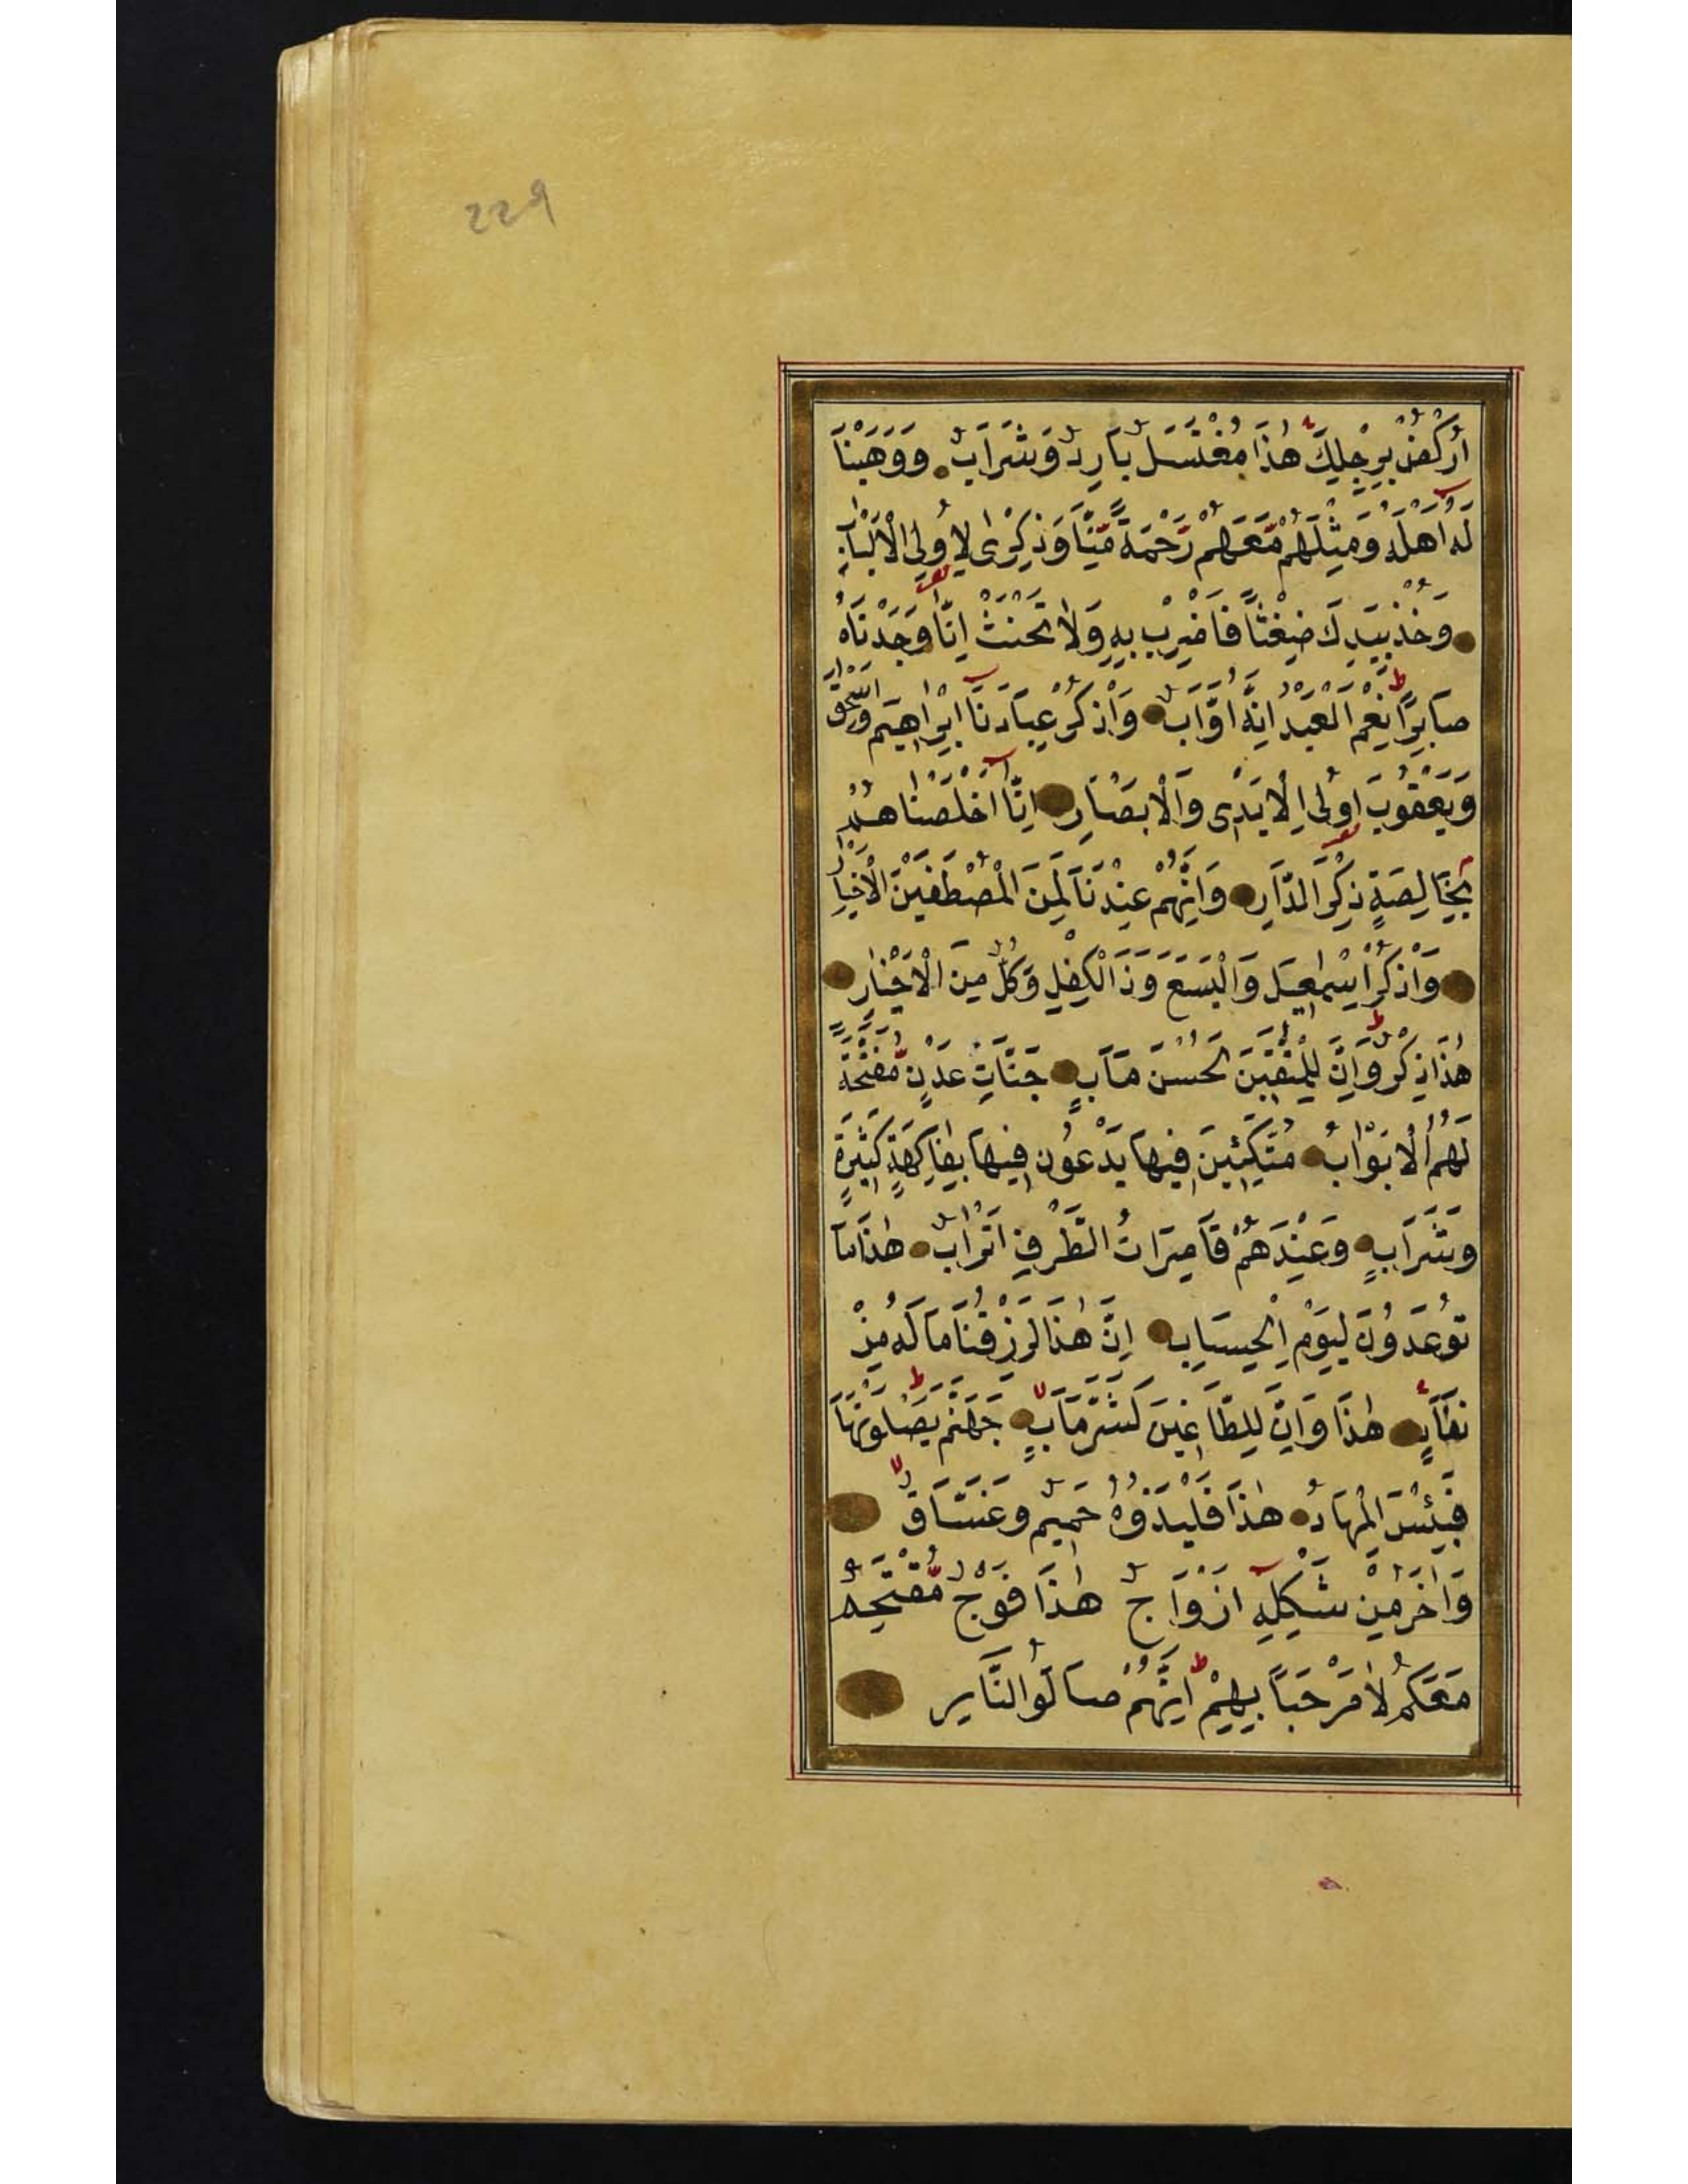 229
اُرْكُضْ بِرِجْلِكَ هٰذَا مُغْتَسَلٌ بَارِدٌ وَشَرَابٌ وَوَهَبْنَا
لَهُ اَهْلَهُ وَمِثْلَهُمْ مَّعَهُمْ رَحْمَةً مِّنَّا وَذِكْرٰى لِاُولِي الْاَلْبَابِ
وَخُذْ بِيَدِكَ ضِغْثًا فَاضْرِبْ بِهِ وَلَا تَحْنَثْ اِنَّا وَجَدْنَاهُ
صَابِرًا نِعْمَ الْعَبْدُ اِنَّهُ اَوَّابٌ وَاذْكُرْ عِبَادَنَا اِبْرٰاهِيمَ وَاِسْحٰقَ
وَيَعْقُوبَ اُولِي الْاَيْدِي وَالْاَبْصَارِ اِنَّا اَخْلَصْنَاهُمْ
بِخَالِصَةٍ ذِكْرَ الدَّارِ وَاِنَّهُمْ عِنْدَنَا لَمِنَ الْمُصْطَفَيْنَ الْاَخْيَارِ
وَاذْكُرْ اِسْمٰعِيلَ وَالْيَسَعَ وَذَا الْكِفْلِ وَكُلٌّ مِنَ الْاَخْيَارِ
هٰذَا ذِكْرٌ وَاِنَّ لِلْمُتَّقِينَ لَحُسْنَ مَآبٍ جَنَّاتِ عَدْنٍ مُّفَتَّحَةً
لَهُمُ الْاَبْوَابُ مُتَّكِئِينَ فِيهَا يَدْعُونَ فِيهَا بِفَاكِهَةٍ كَثِيرَةٍ
وَشَرَابٍ وَعِنْدَهُمْ قَاصِرَاتُ الطَّرْفِ اَتْرَابٌ هٰذَا مَا
تُوعَدُونَ لِيَوْمِ الْحِسَابِ اِنَّ هٰذَا لَرِزْقُنَا مَا لَهُ مِنْ
نَفَادٍ هٰذَا وَاِنَّ لِلطَّاغِينَ لَشَرَّ مَآبٍ جَهَنَّمَ يَصْلَوْنَهَا
فَبِئْسَ الْمِهَادُ هٰذَا فَلْيَذُوقُوهُ حَمِيمٌ وَغَسَّاقٌ
وَاٰخَرُ مِنْ شَكْلِهِ اَزْوَاجٌ هٰذَا فَوْجٌ مُّقْتَحِمٌ
مَعَكُمْ لَا مَرْحَبًا بِهِمْ اِنَّهُمْ صَالُوا النَّارِ